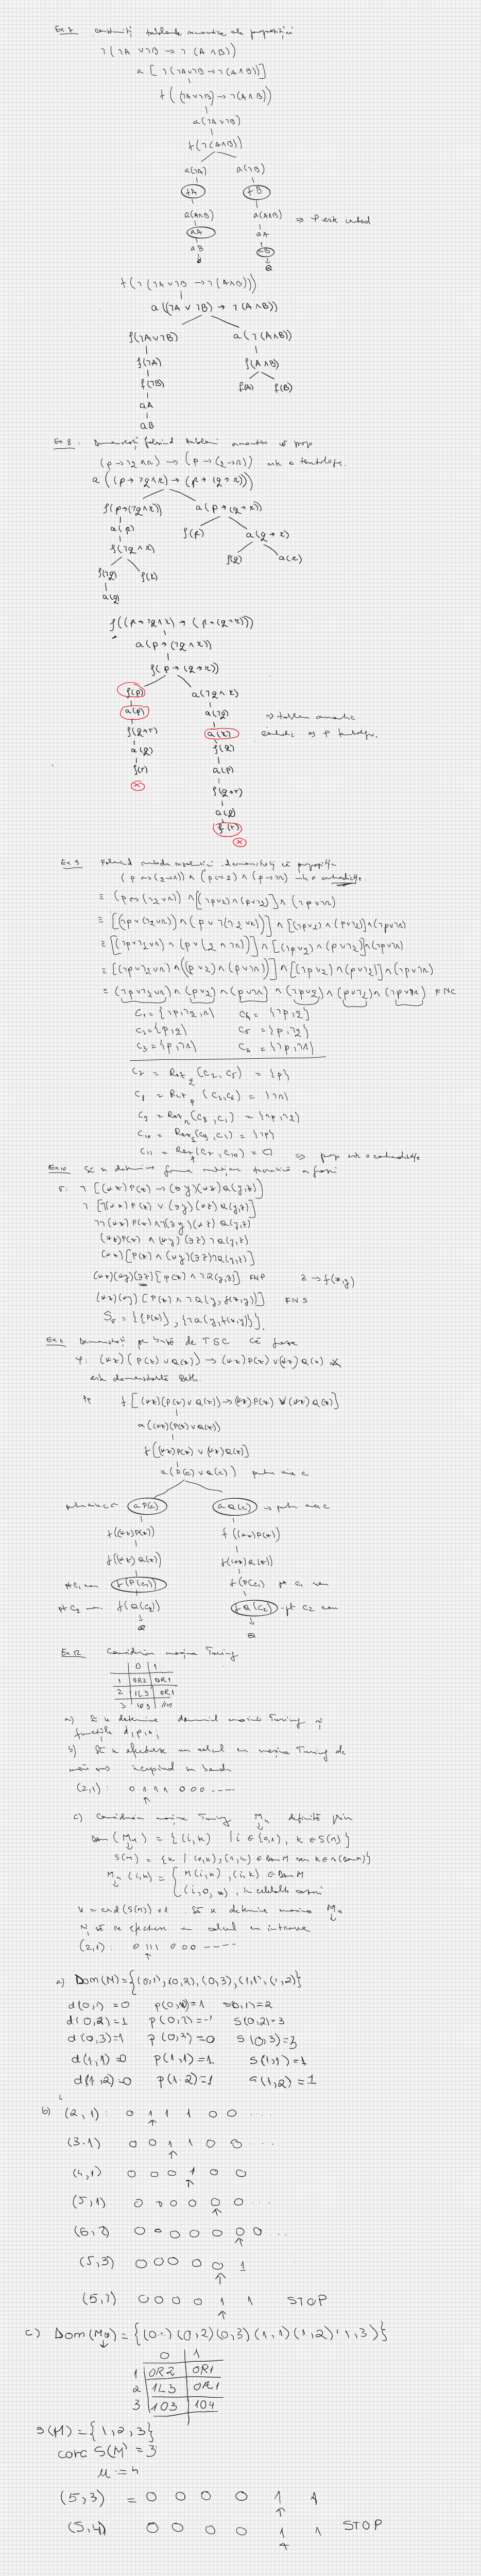 Ex 7 construiți tablourile semantice ale propoziției
¬(¬A ∨ ¬B → ¬(A ∧ B))
a [¬(¬A∨¬B → ¬(A∧B))]
f ((¬A∨¬B) → ¬(A∧B))
a(¬A∨¬B)
f(¬(A∧B))
a(¬A) a(¬B)
fA fB
a(A∧B) a(A∧B) ⇒ P este
aA aA
aB aB
⊗ ⊗
f(¬(¬A∨¬B → ¬(A∧B)))
a((¬A∨¬B) → ¬(A∧B))
f(¬A∨¬B) a(¬(A∧B))
f(¬A) f(A∧B)
f(¬B) f(A) f(B)
aA
aB
Ex 8: Demonstrați folosind tablouri semantice că prop
(p→¬q∧r) → (p→(q→r)) este o tautologie.
a((p→¬q∧r) → (p→(q→r)))
f(p→(¬q∧r)) a(p→(q→r))
a(p) f(p) a(q→r)
f(¬q∧r) f(q) a(r)
f(¬q) f(r)
a(q)
f((p→¬q∧r) → (p→(q→r)))
a(p→(¬q∧r))
f(p→(q→r))
f(p) a(¬q∧r)
a(p) a(¬q) ⇒ tablou semantic
f(q→r) a(r)
a(q) f(q)
f(r) a(p)
⊗ f(q→r)
a(q)
f(r)
⊗
Ex 9 Folosind metoda rezoluției demonstrați că propoziția
(p↔(q→r)) ∧ (p↔q) ∧ (p→¬r) este o contradicție.
≡ (p↔(¬q∨r)) ∧ [(¬p∨q)∧(p∨¬q)] ∧ (¬p∨¬r)
≡ [(¬p∨(¬q∨r)) ∧ (p∨¬(¬q∨r))] ∧ [(¬p∨q)∧(p∨¬q)]∧(¬p∨¬r)
≡ [(¬p∨¬q∨r) ∧ (p∨(q∧¬r))] ∧ [(¬p∨q)∧(p∨¬q)]∧(¬p∨¬r)
≡ [(¬p∨¬q∨r) ∧ ((p∨q)∧(p∨¬r))] ∧ [(¬p∨q)∧(p∨¬q)]∧(¬p∨¬r)
≡ (¬p∨¬q∨r) ∧ (p∨q) ∧ (p∨¬r) ∧ (¬p∨q) ∧ (p∨¬q) ∧ (¬p∨¬r) FNC
C1={¬p,¬q,r} C4={¬p,q}
C2={p,q} C5={p,¬q}
C3={p,¬r} C6={¬p,¬r}
C7 = Rez q (C2,C5) = {p}
C8 = Rez p (C3,C6) = {¬r}
C9 = Rez r (C8,C1) = {¬p,¬q}
C10 = Rez q (C9,C4) = {¬p}
C11 = Rez p (C7,C10) = □ ⇒ prop este o contradicție
Ex 10 Să se determine forma
σ: ¬[(∀x)P(x) → (∃y)(∀z)Q(y,z)]
¬[¬(∀x)P(x) ∨ (∃y)(∀z)Q(y,z)]
¬¬(∀x)P(x) ∧ ¬(∃y)(∀z)Q(y,z)
(∀x)P(x) ∧ (∀y)(∃z)¬Q(y,z)
(∀x)[P(x) ∧ (∀y)(∃z)¬Q(y,z)]
(∀x)(∀y)(∃z)[P(x)∧¬Q(y,z)] FNP z→f(x,y)
(∀x)(∀y)[P(x)∧¬Q(y,f(x,y))] FNS
Sσ = {{P(x)},{¬Q(y,f(x,y))}}.
Ex 11 Demonstrați pe bază de TSC că
φ: (∀x)(P(x)∨Q(x)) → (∀x)P(x)∨(∀x)Q(x)
este demonstrabilă Beth.
Pp f[(∀x)(P(x)∨Q(x)) → (∀x)P(x)∨(∀x)Q(x)]
a((∀x)(P(x)∨Q(x))
f[(∀x)P(x)∨(∀x)Q(x)]
a(P(c)∨Q(c)) pentru orice c
pentru orice c aP(c) aQ(c) → pentru orice c
f((∀x)P(x)) f((∀x)P(x))
f((∀x)Q(x)) f((∀x)Q(x))
pt C1 nou f(P(C1)) f(P(C1) pt C1 nou
pt C2 nou. f(Q(C2)) fQ(C2) -pt C2 nou
⊗ ⊗
Ex 12 Considerăm mașina Turing
0 1
1 0R2 0R1
2 1L3 0R1
3 103
a) Să se determine domeniul mașinii Turing și
funcțiile d,p,s;
b) Să se efectueze un calcul cu mașina Turing de
mai sus începând cu banda
(2,1): 0 1 1 1 0 0 0 ----
↑
c) Considerăm mașina Turing Mu definită prin
Dom(Mu) = {(i,k) | i∈{0,1}, k∈S(M)}
S(M) = {k | (0,k),(1,k)∈Dom M sau k∈s(Dom M)}
Mu(i,k) = M(i,k), (i,k)∈Dom M
(i,0,u), în celelalte cazuri
u = card(S(M))+1 Să se determine mașina Mu
și să se efectueze un calcul cu intrarea
(2,1): 0 111 0 0 0 ----
↑
a) Dom(M)={(0,1),(0,2),(0,3),(1,1),(1,2)}
d(0,1)=0 p(0,1)=1 s(0,1)=2
d(0,2)=1 p(0,2)=-1 s(0,2)=3
d(0,3)=1 p(0,3)=0 s(0,3)=3
d(1,1)=0 p(1,1)=1 s(1,1)=1
d(1,2)=0 p(1,2)=1 s(1,2)=1
b) (2,1): 0 1 1 1 0 0 ...
↑
(3,1) 0 0 1 1 0 0 ...
↑
(4,1) 0 0 0 1 0 0
↑
(5,1) 0 0 0 0 0 0 ...
↑
(6,2) 0 0 0 0 0 0 0 ...
↑
(5,3) 0 0 0 0 0 1
↑
(5,3) 0 0 0 0 1 1 STOP
↑
c) Dom(Mu)={(0,1)(0,2)(0,3)(1,1)(1,2)(1,3)}
0 1
1 0R2 0R1
2 1L3 0R1
3 103 104
S(M)={1,2,3}
card S(M)=3
u=4
(5,3) = 0 0 0 0 1 1
↑
(5,4) 0 0 0 0 1 1 STOP
↑